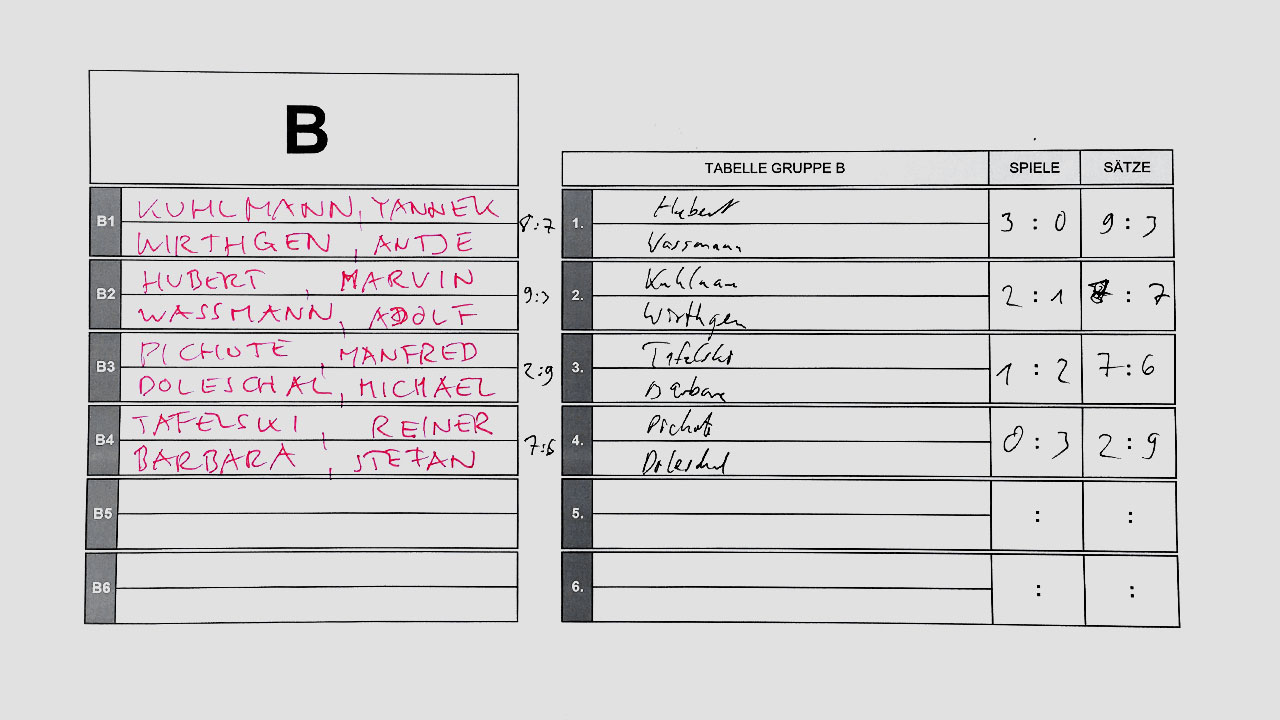 B
B1
KUHLMANN, YANNEK
WIRTHGEN, ANTJE
8:7
B2
HUBERT, MARVIN
WASSMANN, ADOLF
9:3
B3
PICHOTE, MANFRED
DOLESCHAL, MICHAEL
2:9
B4
TAFELSKI, REINER
BARBARA, STEFAN
7:6
B5
B6
TABELLE GRUPPE B SPIELE SÄTZE
1. Hubert
Wassmann
3 : 0 9 : 3
2. Kuhlmann
Wirthgen
2 : 1 : 7
3. Tafelski
Barbara
1 : 2 7 : 6
4. Pichote
Doleschal
0 : 3 2 : 9
5. : :
6. : :